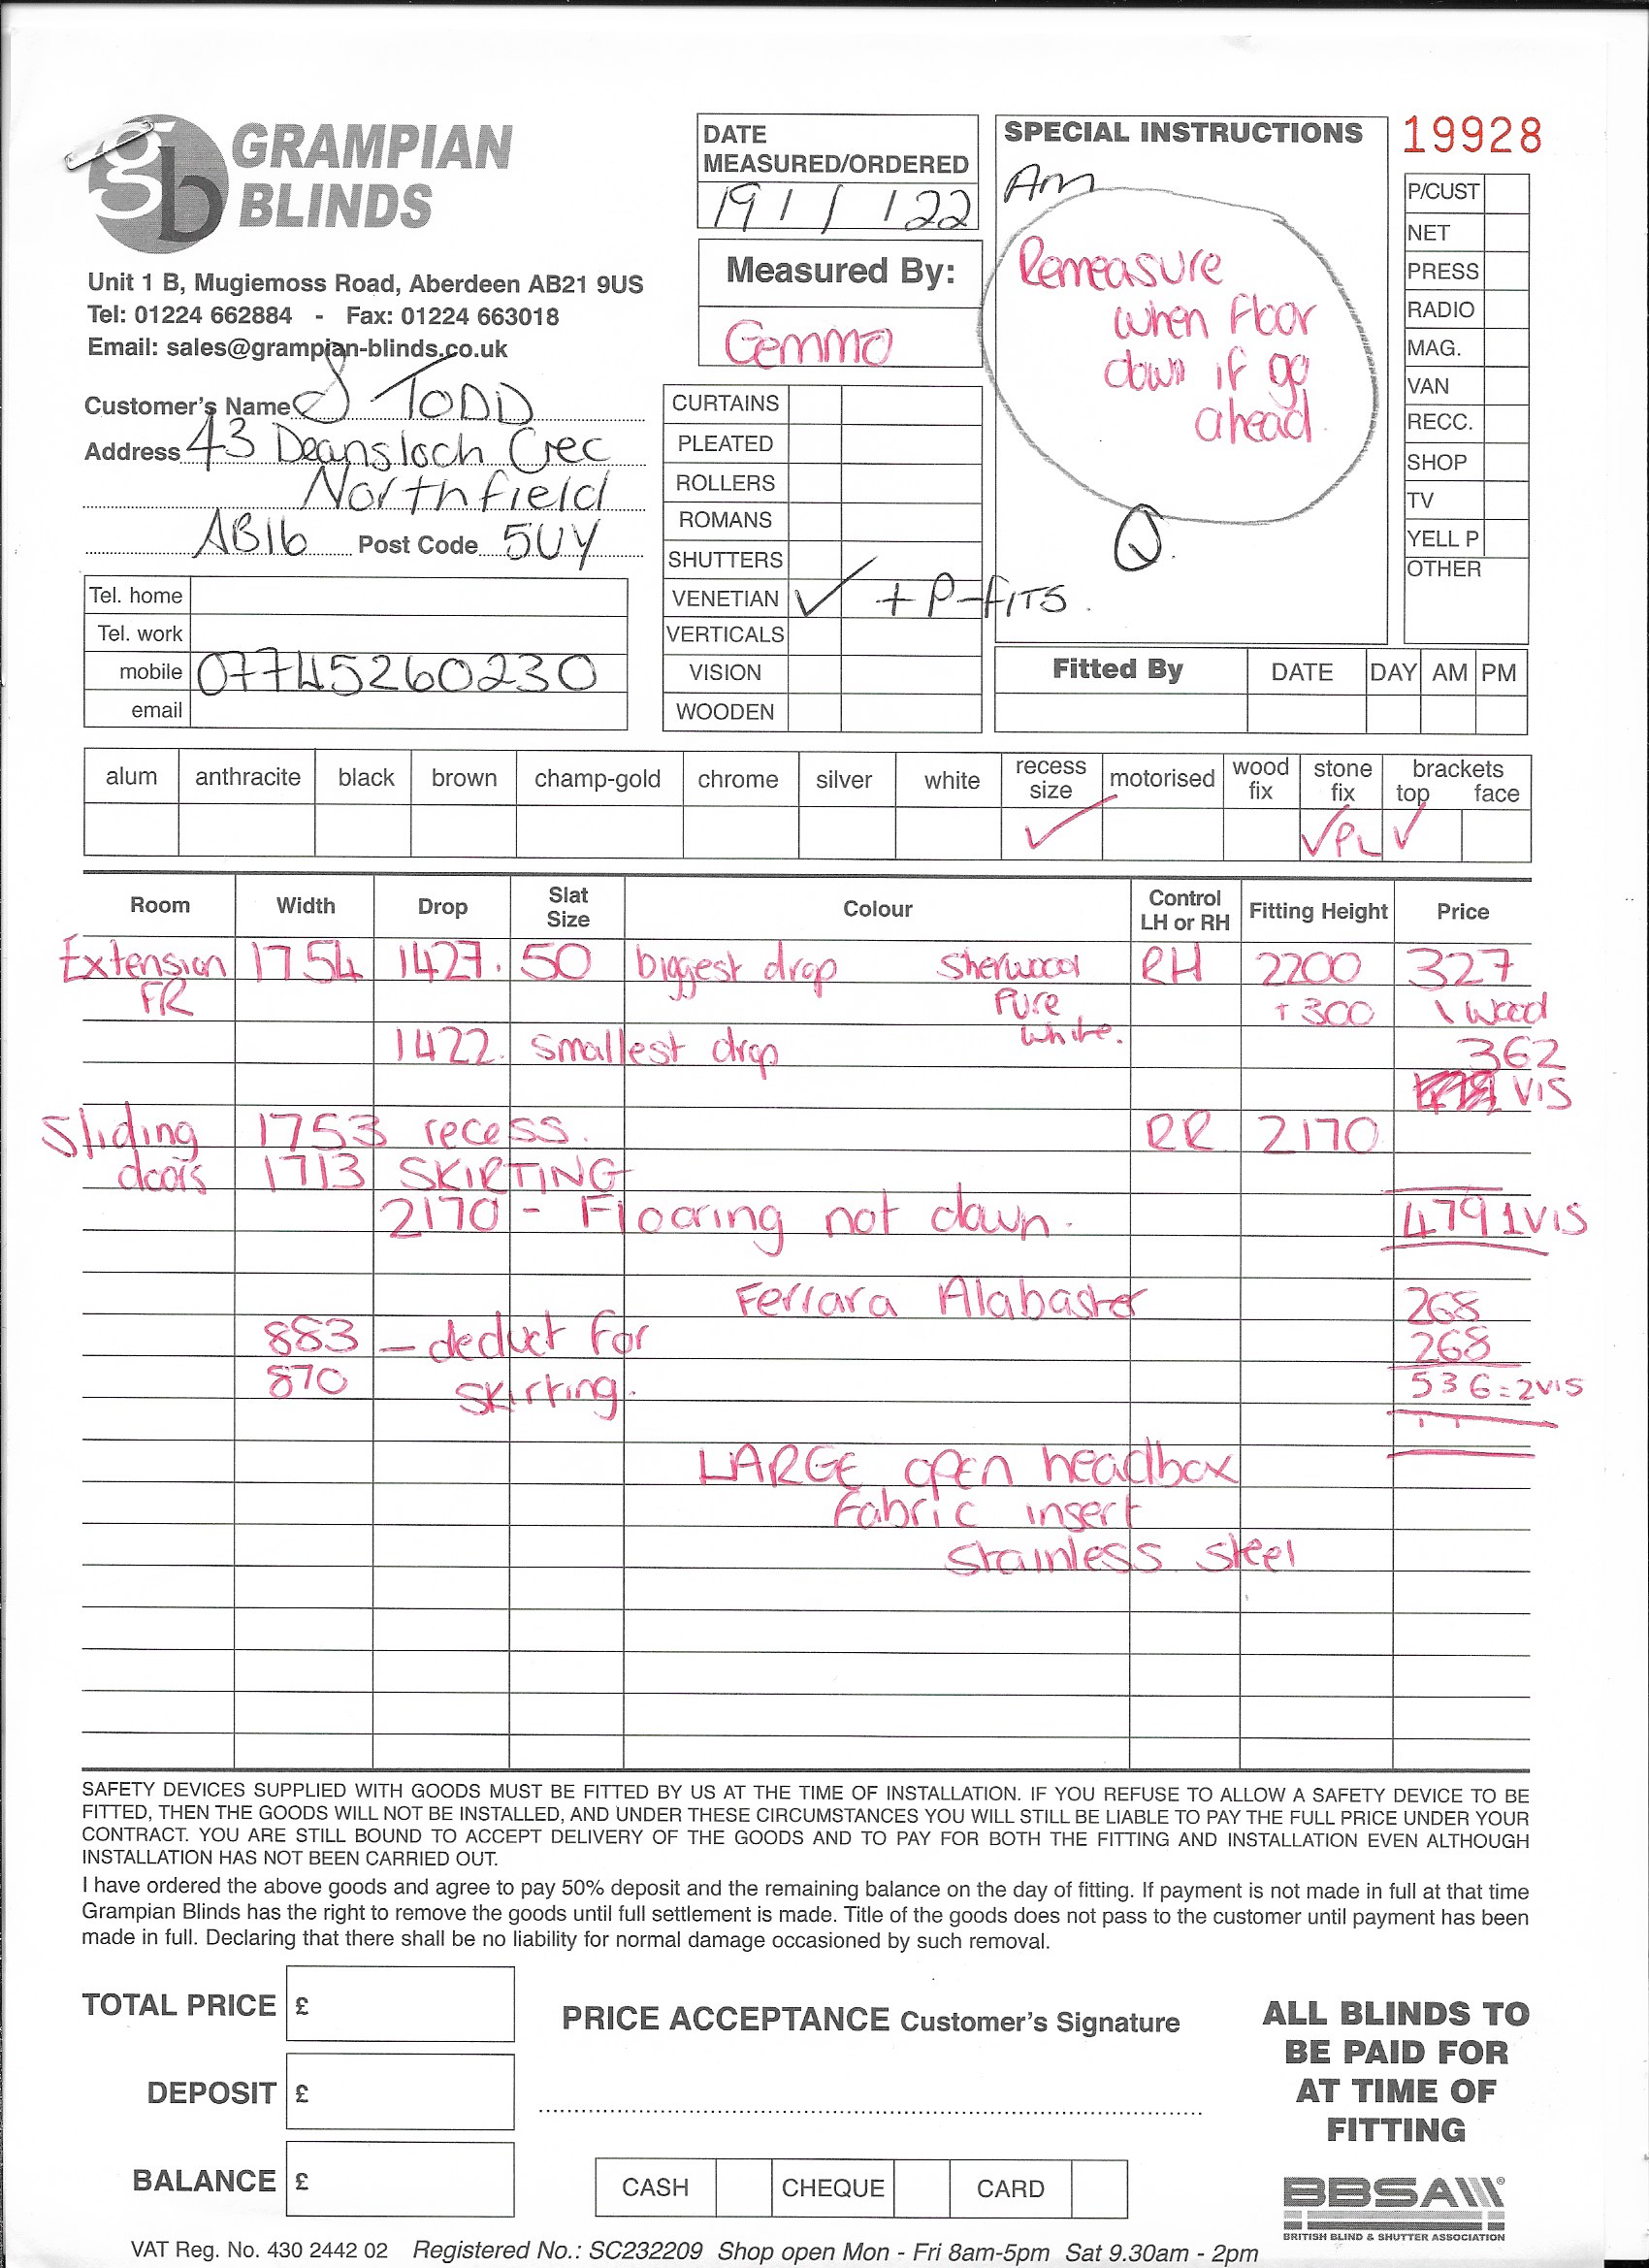 GRAMPIAN
BLINDS
Unit 1 B, Mugiemoss Road, Aberdeen AB21 9US
Tel: 01224 662884 - Fax: 01224 663018
Email: sales@grampian-blinds.co.uk
Customer's Name S TODD
Address 43 Deansloch Crec
Northfield
AB16 Post Code 5UY
Tel. home
Tel. work
mobile 07745260230
email
DATE
MEASURED/ORDERED
19/1/22
Measured By:
Gemma
CURTAINS
PLEATED
ROLLERS
ROMANS
SHUTTERS
VENETIAN ✓ + P-fITS.
VERTICALS
VISION
WOODEN
SPECIAL INSTRUCTIONS
Am
Remeasure
when floor
down if go
ahead
Q.
19928
P/CUST
NET
PRESS
RADIO
MAG.
VAN
RECC.
SHOP
TV
YELL P
OTHER
Fitted By DATE DAY AM PM
alum anthracite black brown champ-gold chrome silver white recess size motorised wood fix stone fix brackets top face
✓ ✓PL ✓
Room Width Drop Slat Size Colour Control LH or RH Fitting Height Price
Extension 1754 1427. 50 biggest drop Sherwood RH 2200 327
FR Pure +300 1 wood
1422. smallest drop white. 362
VIS
Sliding 1753 recess. RR 2170
doors 1713 SKIRTING
2170 - Flooring not down. 479 1VIS
Ferrara Alabaster 268
883 - deduct for 268
870 skirting. 536=2VIS
LARGE open headbox
Fabric insert
Stainless steel
SAFETY DEVICES SUPPLIED WITH GOODS MUST BE FITTED BY US AT THE TIME OF INSTALLATION. IF YOU REFUSE TO ALLOW A SAFETY DEVICE TO BE
FITTED, THEN THE GOODS WILL NOT BE INSTALLED, AND UNDER THESE CIRCUMSTANCES YOU WILL STILL BE LIABLE TO PAY THE FULL PRICE UNDER YOUR
CONTRACT. YOU ARE STILL BOUND TO ACCEPT DELIVERY OF THE GOODS AND TO PAY FOR BOTH THE FITTING AND INSTALLATION EVEN ALTHOUGH
INSTALLATION HAS NOT BEEN CARRIED OUT.
I have ordered the above goods and agree to pay 50% deposit and the remaining balance on the day of fitting. If payment is not made in full at that time
Grampian Blinds has the right to remove the goods until full settlement is made. Title of the goods does not pass to the customer until payment has been
made in full. Declaring that there shall be no liability for normal damage occasioned by such removal.
TOTAL PRICE £
DEPOSIT £
BALANCE £
PRICE ACCEPTANCE Customer's Signature
CASH CHEQUE CARD
ALL BLINDS TO
BE PAID FOR
AT TIME OF
FITTING
BBSA
BRITISH BLIND & SHUTTER ASSOCIATION
VAT Reg. No. 430 2442 02 Registered No.: SC232209 Shop open Mon - Fri 8am-5pm Sat 9.30am - 2pm